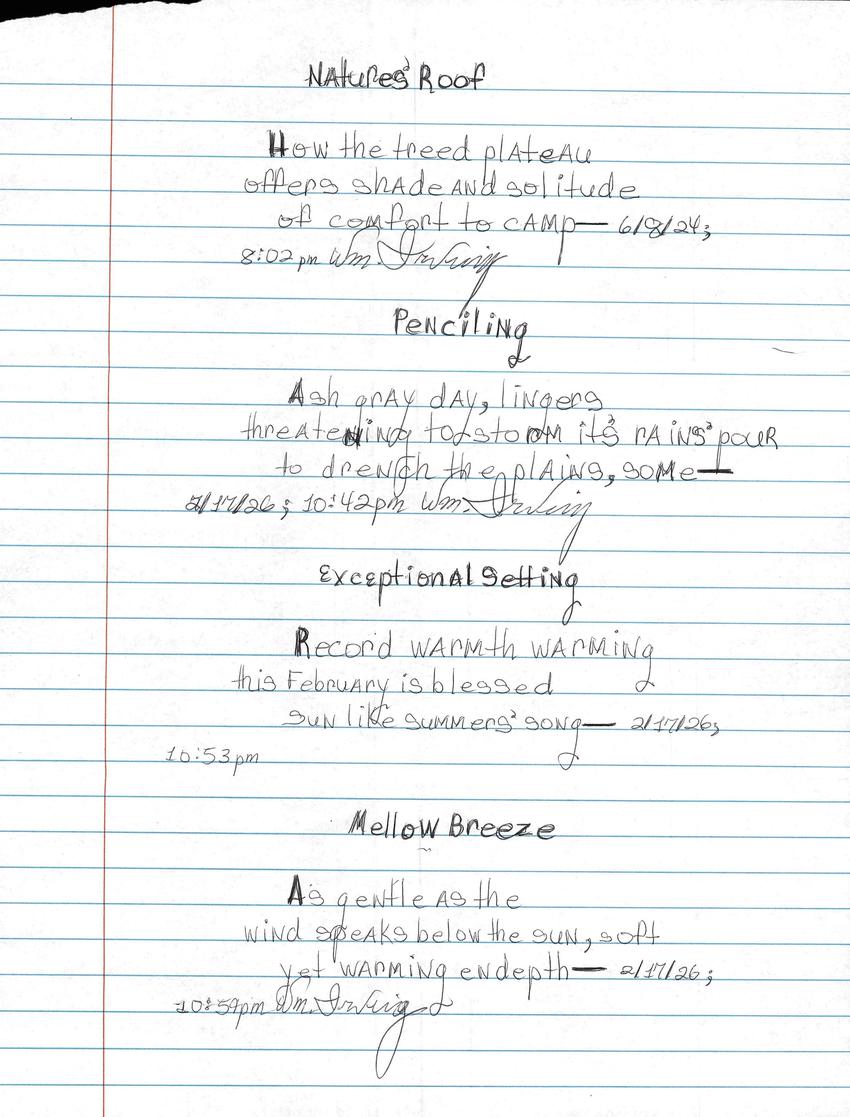 Natures' Roof
How the treed plateau
offers shade and solitude
of comfort to camp— 6/8/24;
8:02 pm Wm. Irving
Penciling
Ash gray day, lingers
threatening to storm it's rains' pour
to drench the plains, some—
2/17/26; 10:42pm Wm. Irving
Exceptional Setting
Record warmth warming
this February is blessed
sun like summers' song— 2/17/26;
10:53pm
Mellow Breeze
As gentle as the
wind speaks below the sun, soft
yet warming endepth— 2/17/26;
10:59pm Wm. Irving